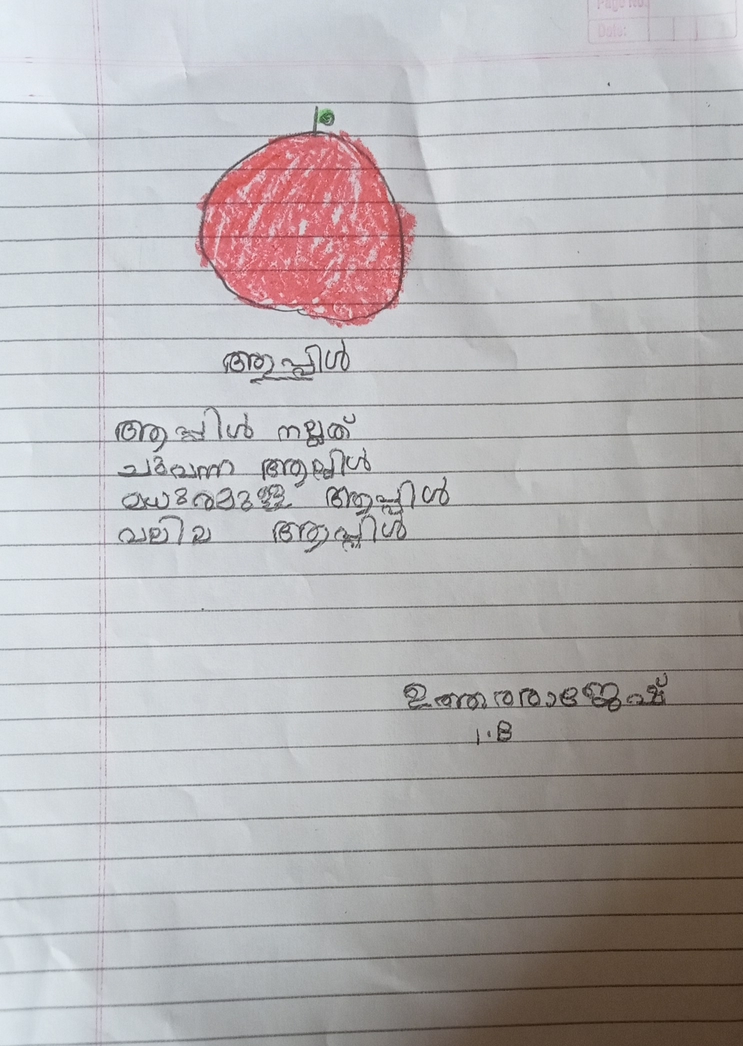 Page No.
Date:
ആപ്പിൾ
ആപ്പിൾ നല്ലത്
ചുവന്ന ആപ്പിൾ
മധുരമുള്ള ആപ്പിൾ
വലിയ ആപ്പിൾ
ഉത്തരരാജേഷ്
1.B